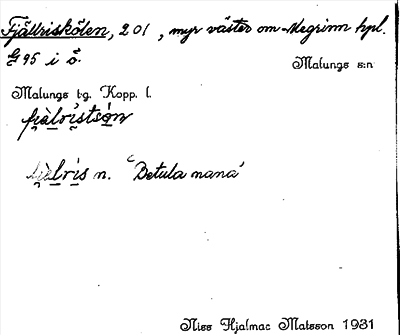 Fjällriskölen, 201, myr väster om Megrinn hpl.
G 95 i ö.
Malungs s:n
Malungs tg. Kopp. l.
fjä̀lrìstsön
fjä̀lrìs n. 'Betula nana'
Niss Hjalmar Matsson 1931